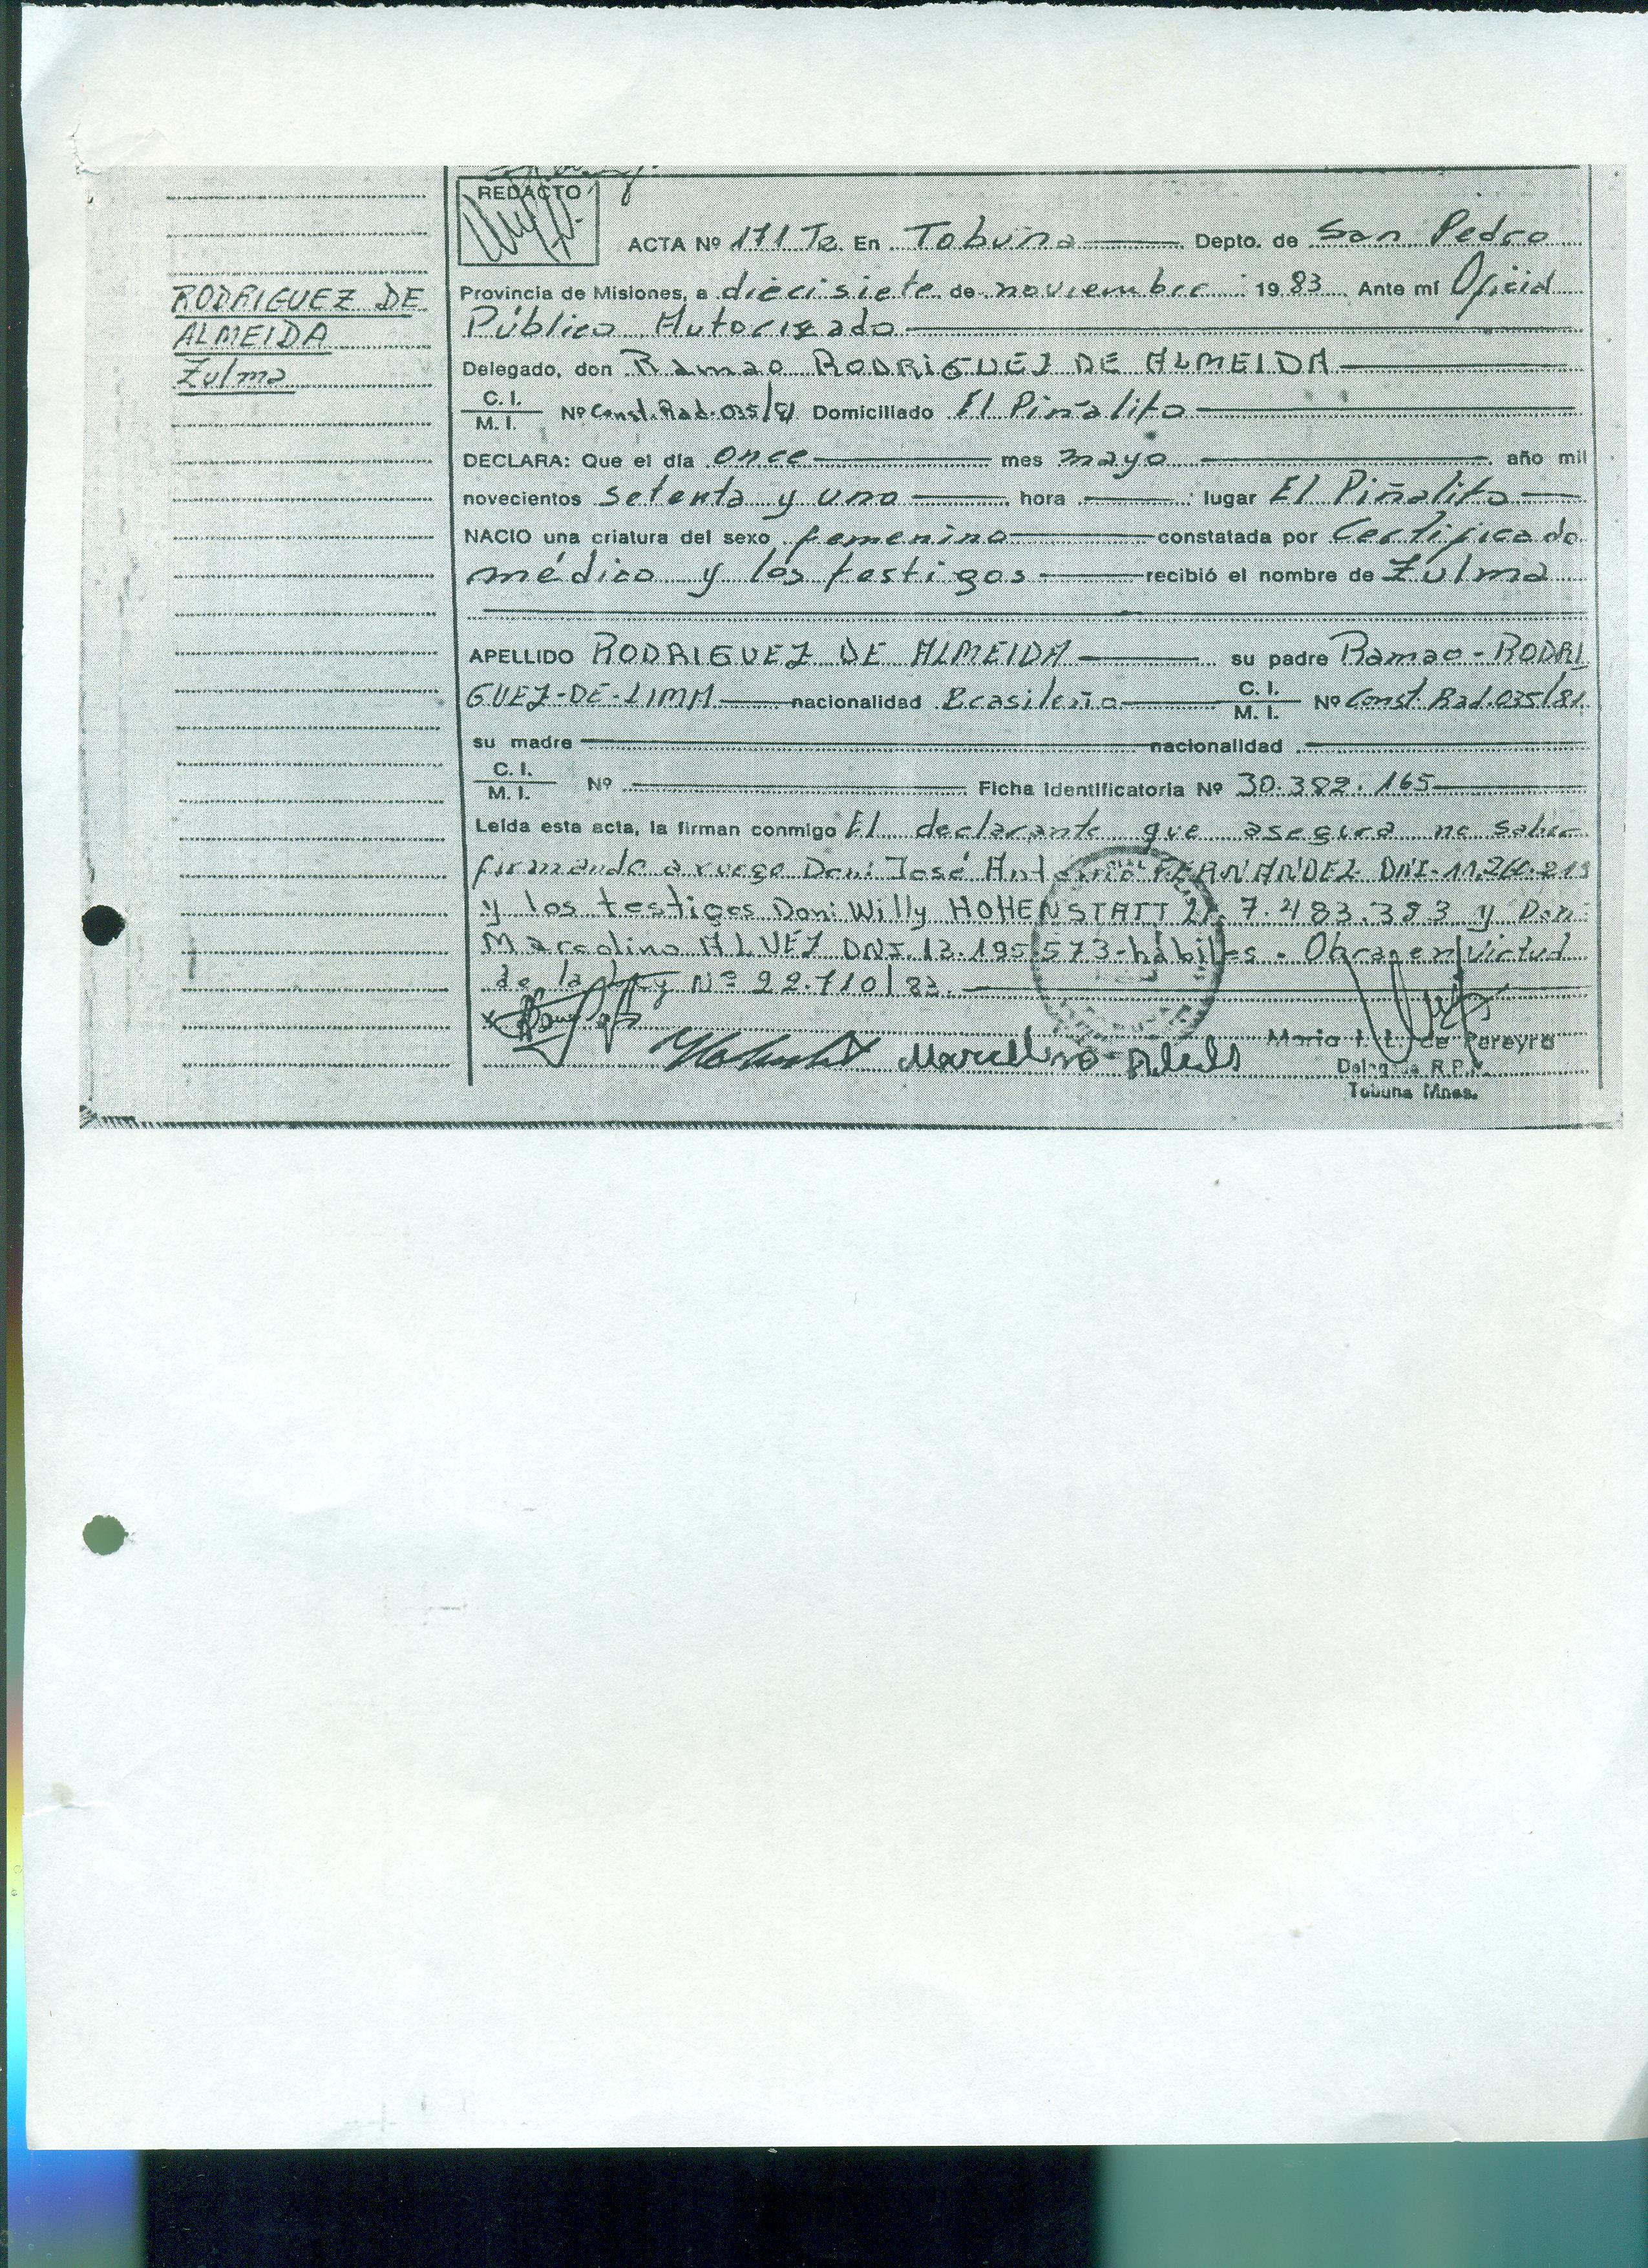 RODRIGUEZ DE
ALMEIDA
Zulma
REDACTO
ACTA Nº 171 Te. En Tobuna Depto. de San Pedro
Provincia de Misiones, a diecisiete de noviembre 1983 Ante mí Oficial
Público Autorizado
Delegado, don Ramao RODRIGUEZ DE ALMEIDA
C. I.
M. I. Nº Const. Rad. 035/81 Domiciliado El Piñalito
DECLARA: Que el día once mes mayo año mil
novecientos setenta y uno hora lugar El Piñalito
NACIO una criatura del sexo femenino constatada por Certificado
médico y los testigos recibió el nombre de Zulma
APELLIDO RODRIGUEZ DE ALMEIDA su padre Ramao-RODRI
GUEZ-DE-LIMA nacionalidad Brasileña C. I.
M. I. Nº Const. Rad. 035/81
su madre nacionalidad
C. I.
M. I. Nº Ficha Identificatoria Nº 30.382.165
Leída esta acta, la firman conmigo El declarante que asegura no saber
firmando a ruego Don: José Antonio FERNANDEZ DNI-11.260.219
y los testigos Don: Willy HOHENSTATT 7.483.383 y Don:
Marcelino ALVEZ DNI. 13.195.573-hábiles. Obra en virtud
de la ley Nº 22.710/83.
Marcelino
Maria de Pereyra
Delegada R.P.
Tobuna Mnes.